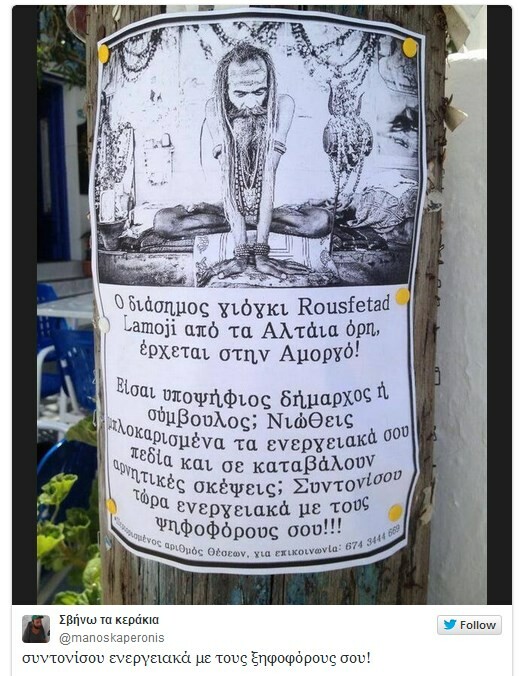 Ο διάσημος γιόγκι Rousfetad
Lamoji από τα Αλτάια όρη,
έρχεται στην Αμοργό!
Είσαι υποψήφιος δήμαρχος ή
σύμβουλος; Νιώθεις
μπλοκαρισμένα τα ενεργειακά σου
πεδία και σε καταβάλουν
αρνητικές σκέψεις; Συντονίσου
τώρα ενεργειακά με τους
ψηφοφόρους σου!!!
*Περιορισμένος αριθμός θέσεων, για επικοινωνία: 674 3444 669
Σβήνω τα κεράκια
@manoskaperonis
Follow
συντονίσου ενεργειακά με τους ξηφοφόρους σου!